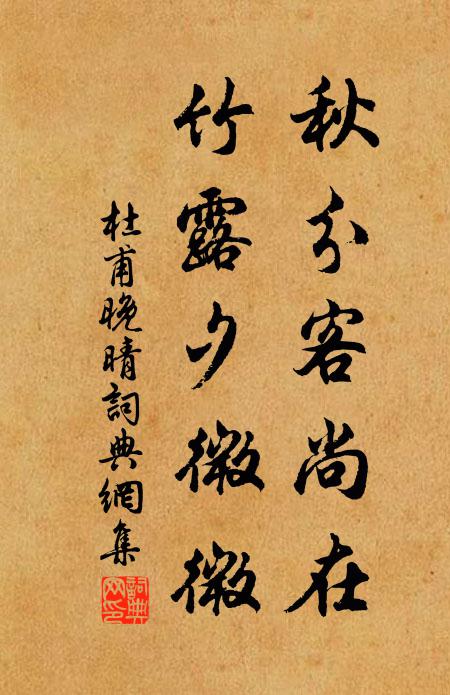 秋分客尚在
竹露夕微微
杜甫晚晴詞典網集
詞典网印